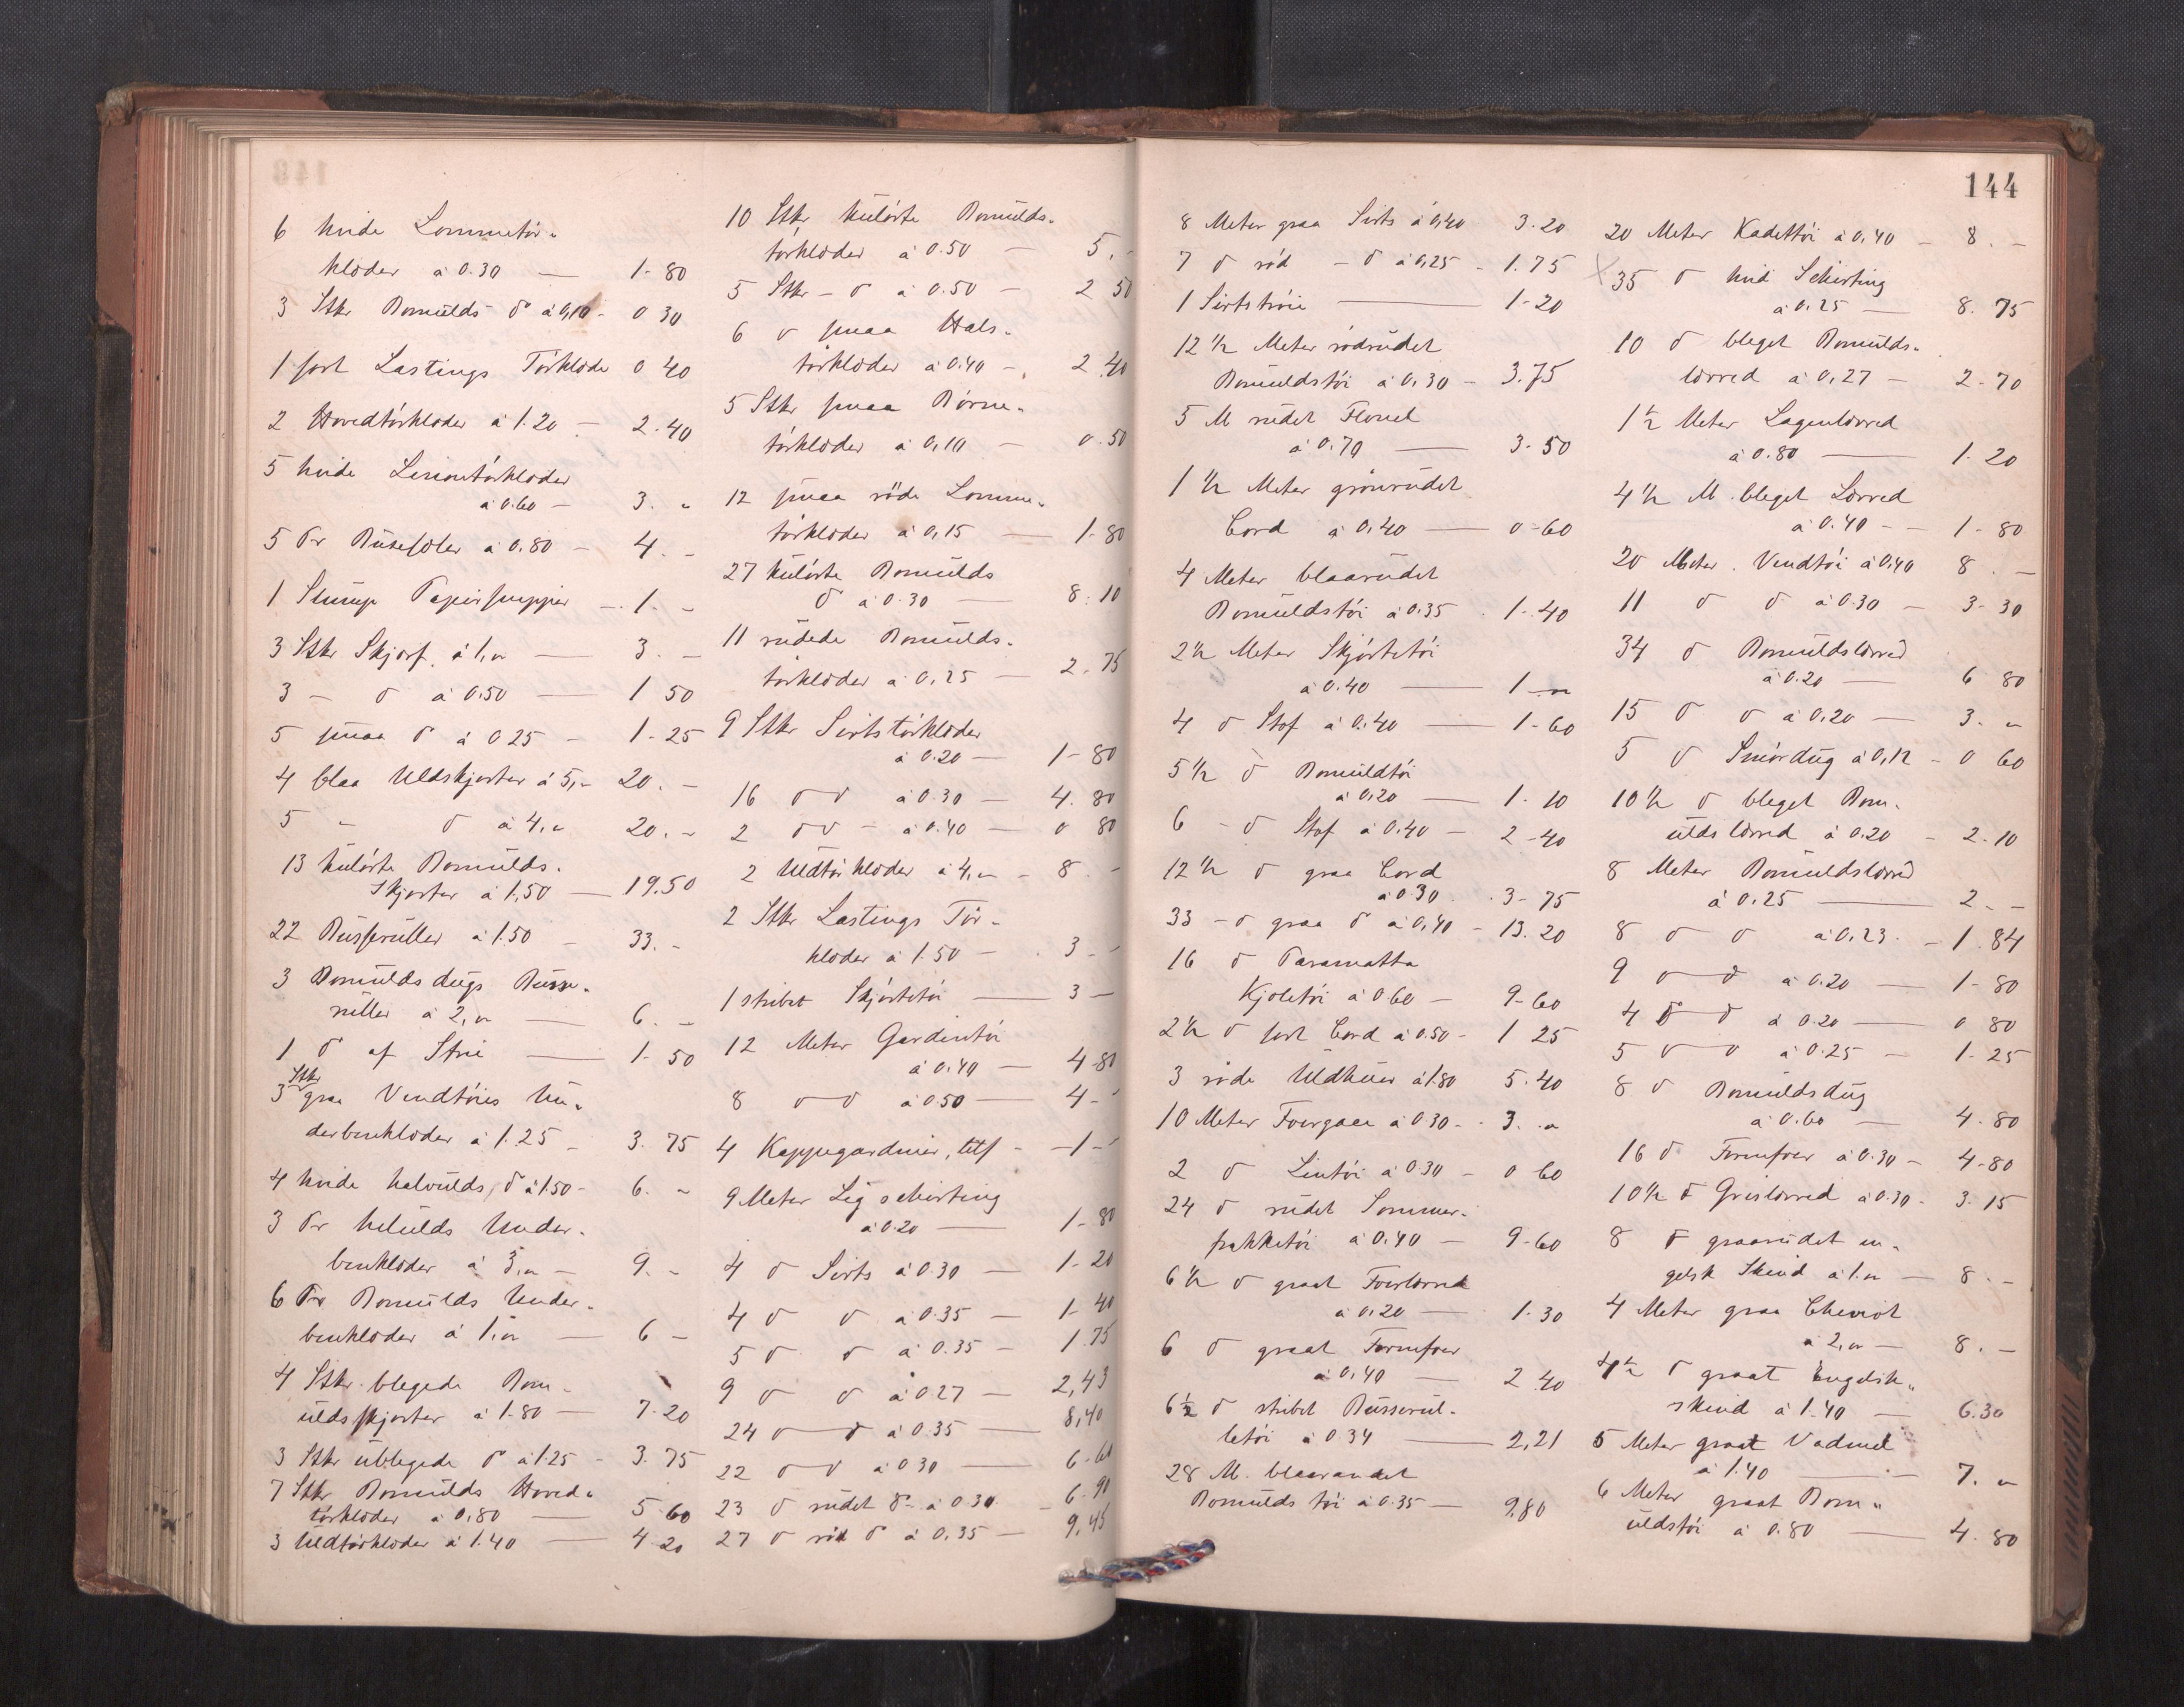 6 hvide Lommetør-
klæder à 0.30 — 1-80
3 Stkr Bomulds do à 0,10 - 0 30
1 sort Lastings Tørklæde 0 40
2 Hovedtørklæder à 1.20 - 2.40
5 hvide Linontørklæder
à 0.60 - 3. "
5 Pr Buxesæler à 0.80 - 4. -
1 Slump Papirsnipper - 1. -
3 Stkr Skjørf. à 1," — 3. -
3 - do à 0.50 — 1 50
5 smaa do à 0 25 - 1-25
4 blaa Uldskjorter à 5,- 20. -
5 - do à 4." 20. -
13 kulørte Bomulds-
Skjorter à 1,50 — 19.50
22 Busseruller à 1.50 - 33. -
3 Bomuldsdugs Busse-
ruller à 2," — 6. -
1 do af Strie — 1-50
3 Stkr graa Vendtøies Un-
derbenklæder à 1.25 - 3. 75
4 hvide halvulds, do à 1.50 - 6. -
3 Pr heluldss Under-
benklæder à 3," - 9. -
6 Pr Bomulds Under-
benklæder à 1," — 6 -
4 Stkr. blegede Bom-
uldsskjorter à 1-80 — 7-20
3 Stkr ublegede do à 1.25 - 3. 75
7 Stkr Bomulds Hoved-
tørklæder à 0,80 — 5 60
3 Uldtørklæder à 1.40 — 4 20
10 Stkr kulørte Bomulds-
tørklæder à 0.50 — 5. -
5 Stkr - do à 0.50 — 2 50
6 do smaa Hals-
tørklæder à 0.40 - 2.40
5 Stkr smaa Børne-
tørklæder à 0,10 — 0.50
12 smaa røde Lomme-
tørklæder à 0,15 — 1-80
27 kulørte Bomulds
do à 0.30 — 8.10
11 rudede Bomulds-
tørklæder à 0,25 — 2.75
9 Stkr Sirtstørklæder
à 0.20 — 1-80
16 do do à 0.30 — 4.80
2 do do - à 0.40 — 0 80
2 Uldtørklæder à 4," - 8. -
2 Stkr Lastings Tør-
klæder à 1.50 - 3 -
1 stribet Skjørtetøi — 3 -
12 Meter Gardintøi
à 0.40 — 4-80
8 do do à 0 50 — 4-
4 Kappegardiner, tils - 1 -
9 Meter Ligschirting
à 0.20 — 1-80
4 do Sirts à 0.30 — 1-20
4 do do à 0.35 — 1-40
5 do do à 0.35 — 1.75
9 do do à 0.27 — 2,43
24 do do à 0.35 — 8,40
22 do do à 0 30 — 6-60
23 do rudet do - à 0.30 - 6-90
27 do rød do à 0.35 — 9,45
144
8 Meter graa Sirts à 0,40 3.20
7 do rød - do à 0,25 - 1.75
1 Sirtstrøie — 1-20
12 1/2 Meter rødrudet
Bomuldstøi à 0,30 - 3.75
5 M rudet Flonel
à 0.70 — 3-50
1 1/2 Meter grønrudet
Cord à 0.40 — 0-60
4 Meter blaarudet
Bomuldstøi à 0.35 . 1-40
2 1/2 Meter Skjørtetøi
à 0.40 — 1 -"
4 do Stof à 0.40 — 1-60
5 1/2 do Bomuldtøi
à 0,20 — 1-10
6 - do Stof à 0.40 — 2-40
12 1/2 do graa Cord
à 0 30 . 3-75
33 - do graa do à 0,40 - 13.20
16 do Paramatta
Kjoletøi à 0 60 — 9-60
2 1/2 do sort Cord à 0.50 - 1 25
3 røde Uldhuer à 1.80 5.40
10 Meter Foergaee à 0 30 - 3. "
2 do Lintøi à 0.30 - 0 60
24 do rudet Sommer-
frakketøi à 0.40 — 9-60
6 1/2 do graat Foerlærred
à 0,20 — 1-30
6 do graat Formfoer
à 0,40 — 2.40
6 1/2 do stribet Busserul-
letøi à 0 34 — 2,21
28 M. blaarandet
Bomulds tøi à 0.35 — 9.80
20 Meter Kadettøi à 0,40 - 8. -
X 35 do hvid Schirting
à 0.25 — 8.75
10 do bleget Bomulds-
lærred à 0,27 — 2-70
1 1/2 Meter Lagenlærred
à 0.80 — 1-20
4 1/2 M. bleget Lærred
à 0.40 - - 1-80
20 Meter. Vendtøi à 0,40 8. -
11 do do à 0.30 — 3-30
34 do Bomuldslærred
à 0.20 — 6 80
15 do do à 0,20 — 3. "
5 do Smørdug à 0,12 - 0 60
10 1/2 do bleget Bom-
uldslærred à 0.20 - 2-10
8 Meter Bomuldslærred
à 0.25 — 2 - -
8 do do à 0,23. - 1.84
9 do do à 0.20 — 1-80
4 do do à 0.20 — 0 80
5 do do à 0.25 — 1-25
8 do Bomuldsdug
à 0.60 — 4-80
16 do Formfoer à 0.30 - 4-80
10 1/2 do Grislærred à 0.30 - 3.15
8 do graarudet en-
gelsk Skind à 1." — 8. -
4 Meter graa Cheviot
à 2," — 8. -
4 1/2 do graat Engelsk-
skind à 1.40 — 6.30
5 Meter graat Vadmel
à 1.40 — 7. "
6 Meter graat Bom-
uldstøi à 0.80 — 4.80